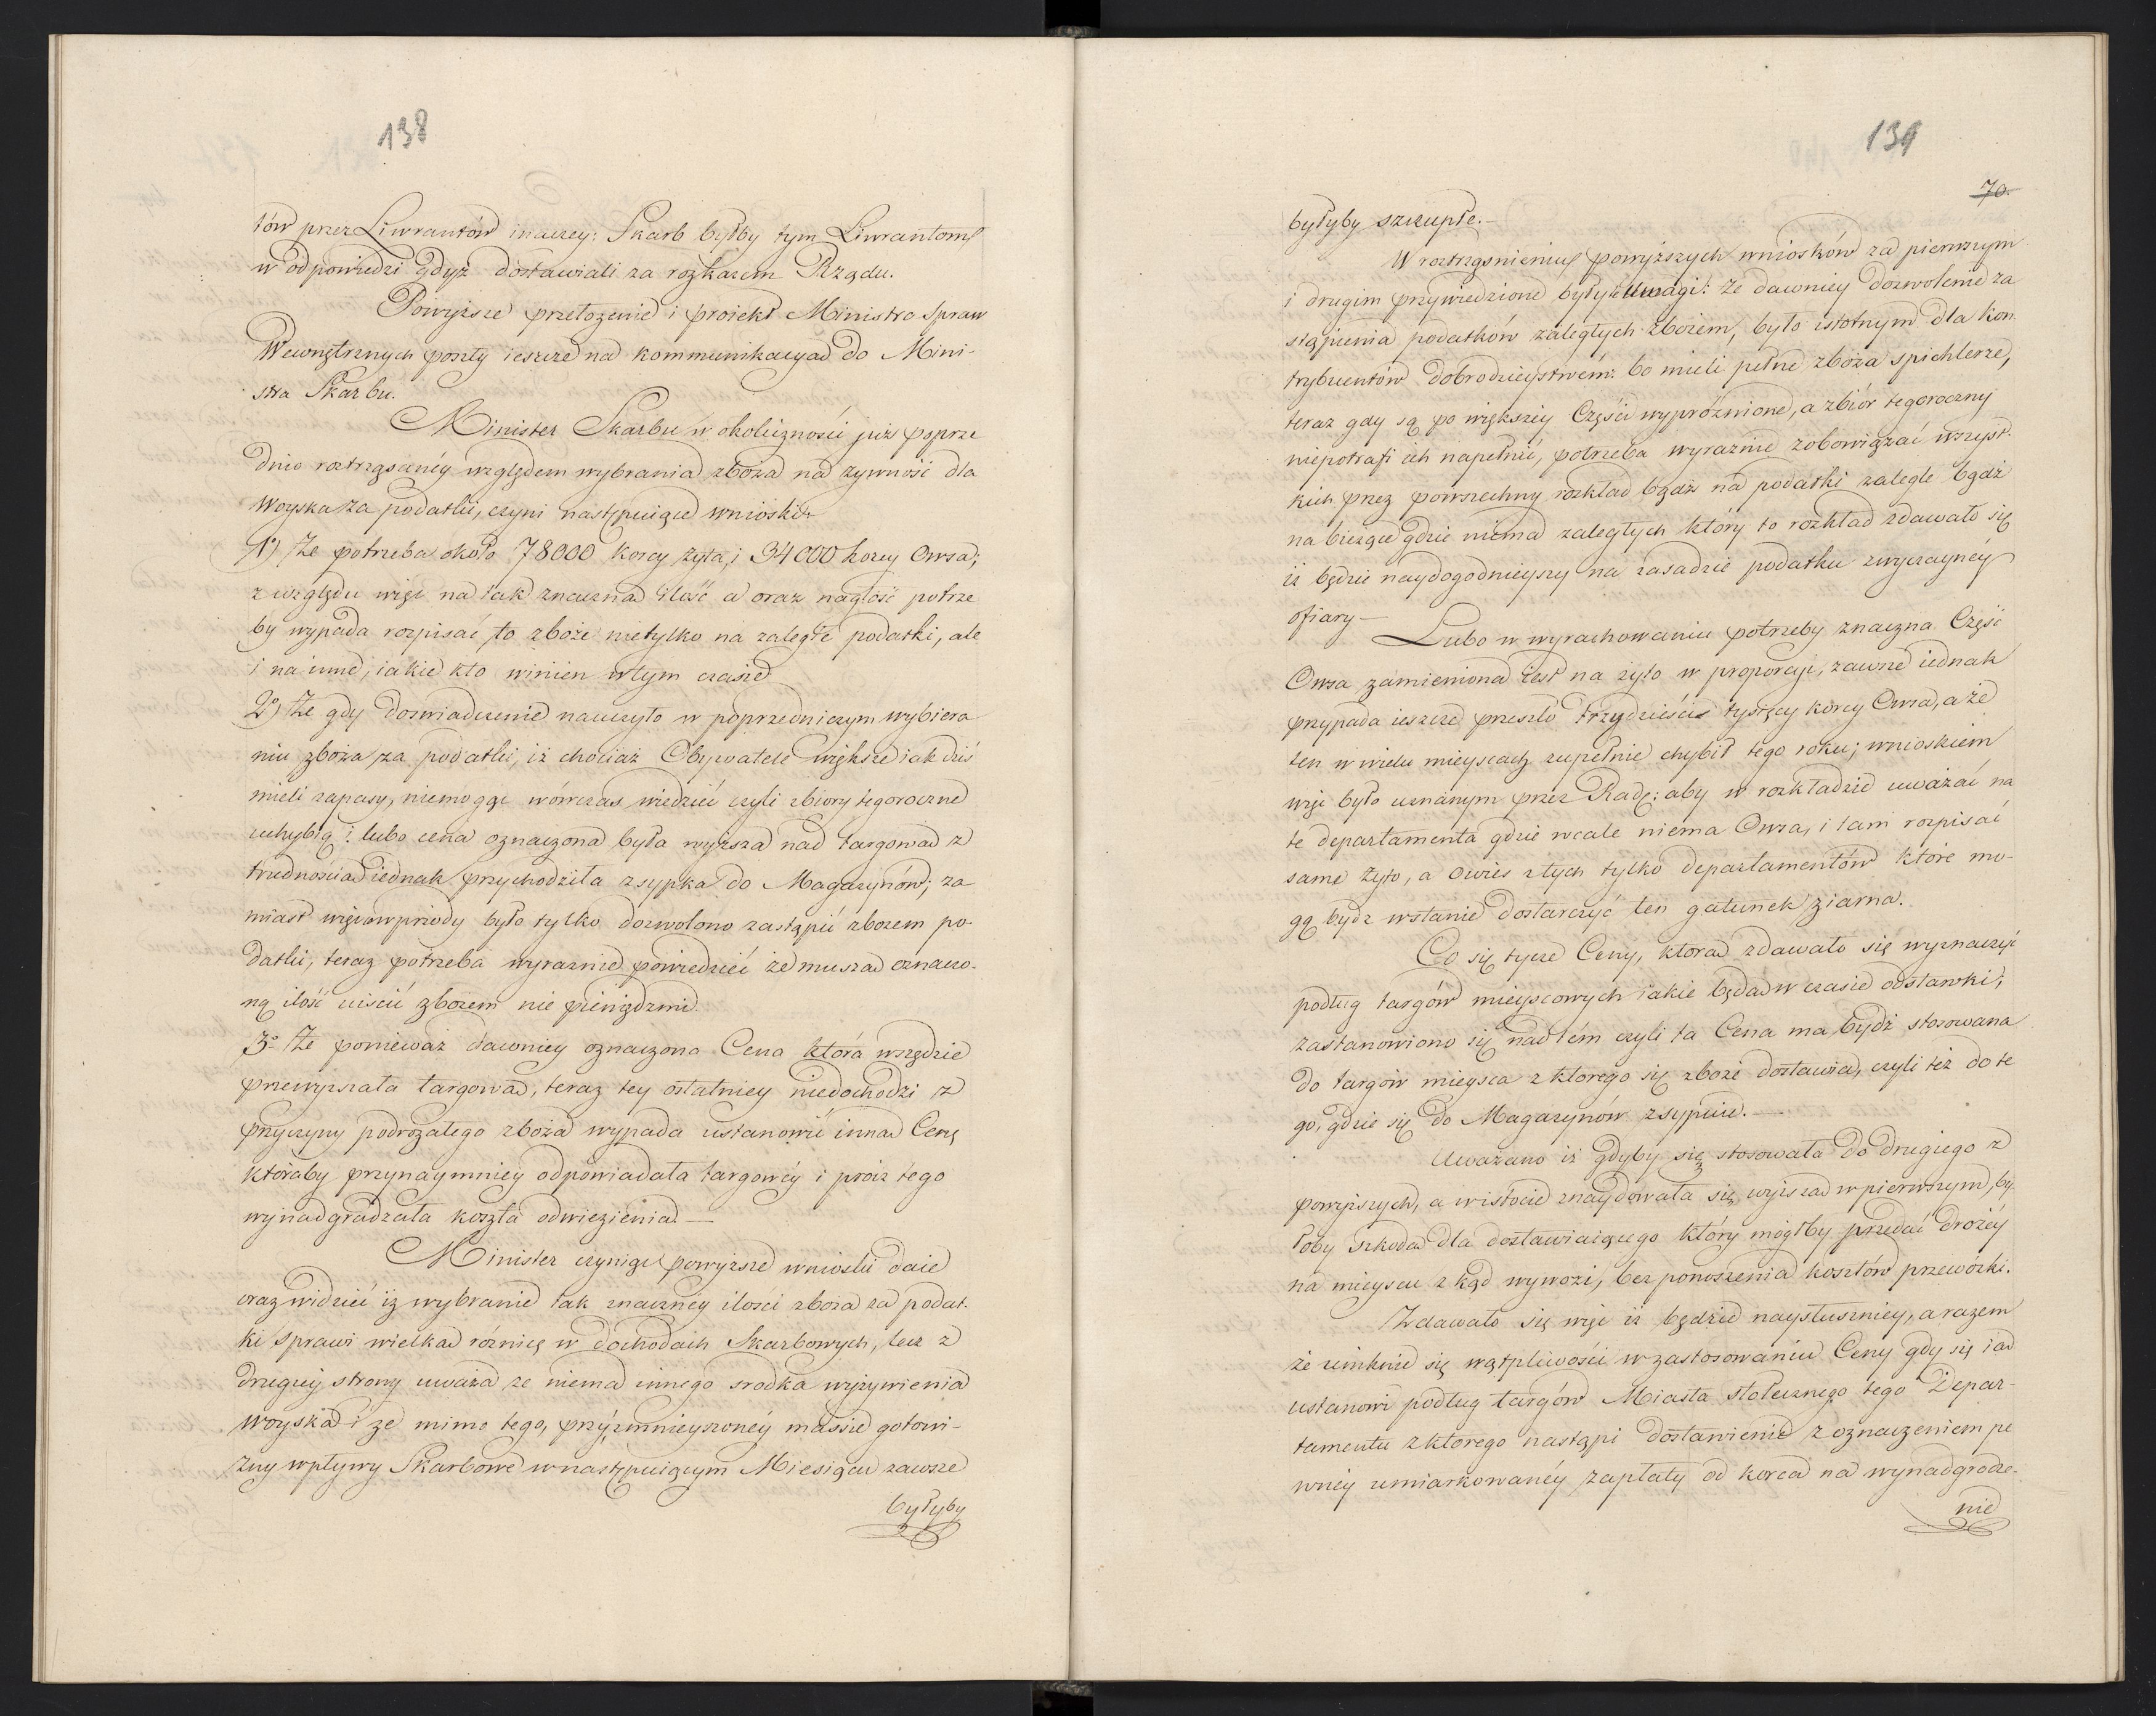 138
tów przez Liwrantów inaczey: Skarb byłby tym Liwrantom
w odpowiedzi gdyż dostawiali za rozkazem Rządu.
Powyższe przełożenie i proiekt Ministra Spraw
Wewnętrznych poszły ieszcze na kommunikacyą do Mini-
stra Skarbu.
Minister Skarbu w okoliczności już poprze
dnio roztrząsanéy względem wybrania zboża na żywność dla
Woyska za podatki, czyni następuiące wnioski
1º) Że potrzeba około 78000 korcy żyta, i 34000 korcy Owsa;
z względu więc na tak znaczną ilość a oraz nagłość potrze
by wypada rozpisać to zboże nietylko na zaległe podatki, ale
i na inne, iakie kto winien w tym czasie
2º) Że gdy doświadczenie nauczyło w poprzedniczym wybiera
niu zboża za podatki, iż chociaż Obywatele większe iak dziś
mieli zapasy, niemogąc wówczas wiedzieć czyli zbiory tegoroczne
uchybią: lubo cena oznaczona była wyższa nad targową z
trudnością iednak przychodziła zsypka do Magazynów; za
miast więc iż w przódy było tylko dozwolono zastąpić zbożem po-
datki, teraz potrzeba wyraźnie powiedzieć że muszą oznaczo-
ną ilość uiścić zbożem nie pieniędzmi.
3º Że ponieważ dawniey oznaczona Cena która wszędzie
przewyższała targową, teraz tey ostatniey niedochodzi z
przyczyny podrożałego zboża wypada ustanowić inną Cenę
któraby przynaymniey odpowiadała targowéy i prócz tego
wynadgradzała koszta odwiezienia. —
Minister czyniąc powyższe wnioski daie
oraz widzieć iż wybranie tak znacznéy ilości zboża za podat-
ki sprawi wielką różnicę w dochodach Skarbowych, lecz z
drugiey strony uważa że niema innego srodka wyżywienia
woyska i że mimo tego, przy zmnieyszonéy massie gotowi-
zny wpływy Skarbowe w następuiącym Miesiącu zawsze
byłyby
139
70.
byłyby szczupłe. —
W roztrząśnieniu powyższych wniosków za pierwszym
i drugim przywiedzione były te Uwagi: że dawniey dozwolenie za
stąpienia podatków zaległych zbożem, było istotnym dla kon-
trybuentów dobrodzieystwem: bo mieli pełne zboża spichlerze,
teraz gdy są po większey Części wypróżnione, a zbiór tegoroczny
niepotrafi ich napełnić, potrzeba wyraźnie zobowiązać wszyst-
kich przez powszechny rozkład bądź na podatki zaległe bądź
na bieżące gdzie niema zaległych który to rozkład zdawało się
iż będzie naydogodnieyszy na zasadzie podatku zwyczaynéy
ofiary —
Lubo w wyrachowaniu potrzeby znaczna Część
Owsa zamieniona iest na żyto w proporcyi, zawsze iednak
przypada ieszcze przeszło trzydzieści tysięcy korcy Owsa, a że
ten w wielu mieyscach zupełnie chybił tego roku; wnioskiem
więc było uznanym przez Radę: aby w rozkładzie uważać na
te departamenta gdzie wcale niema Owsa, i tam rozpisać
same żyto, a Owies z tych tylko departamentów które mo-
gą bydz wstanie dostarczyć ten gatunek ziarna.
Co się tycze Ceny, którą zdawało się wyznaczyć
podług targów mieyscowych iakie będą w czasie odstawki;
zastanowiono się nad tém czyli ta Cena ma bydź stosowana
do targów mieysca z którego się zboże dostawia, czyli też do te
go, gdzie się do Magazynów zsypuie. —
Uważano iż gdyby się stosowała do drugiego z
powyższych, a w istocie znaydowała się wyższa w pierwszym, by-
łoby szkodą dla dostawiaiącego który mógłby przedać drożéy
na mieyscu z kąd wywozi, bez ponoszenia kosztów przewózki.
Zdawało się więc iż będzie naysłuszniey, a razem
że uniknie się wątpliwości w zastosowaniu Ceny gdy się ią
ustanowi podług targów Miasta stołecznego tego Depar-
tamentu z którego nastąpi dostawienie z oznaczeniem pe
wnéy umiarkowanéy zapłaty od korca na wynadgrodze-
nie